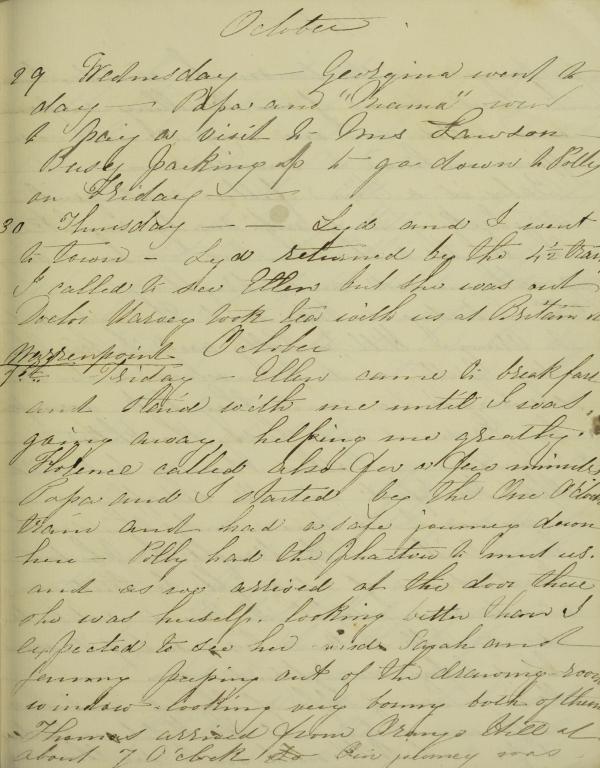 October
29 Wednesday — Georgina went to
day — Papa and "Mama" went
to pay a visit to Mrs Lawson —
Busy packing up to go down to Polly
on Friday —
30 Thursday — — Lyd and I went
to town – Lyd returned by the 4½ train
I called to see Ellen but she was out
Doctor Harvey took tea with us at Britain
Warrenpoint October
Friday – Ellen came to breakfast
and staid with me until I was
going away, helping me greatly.
Florence called also for a few minutes
Papa and I started by the One O'Clock
train and had a safe journey down
here – Polly had the phaeton to meet us.
and as we arrived at the door there
she was herself. looking better than I
expected to see her and Sarah and
Jenny peeping out of the drawing-room
window – looking very bonny both of them
Thomas arrived from Orange Hill at
about 7 O'Clock journey was